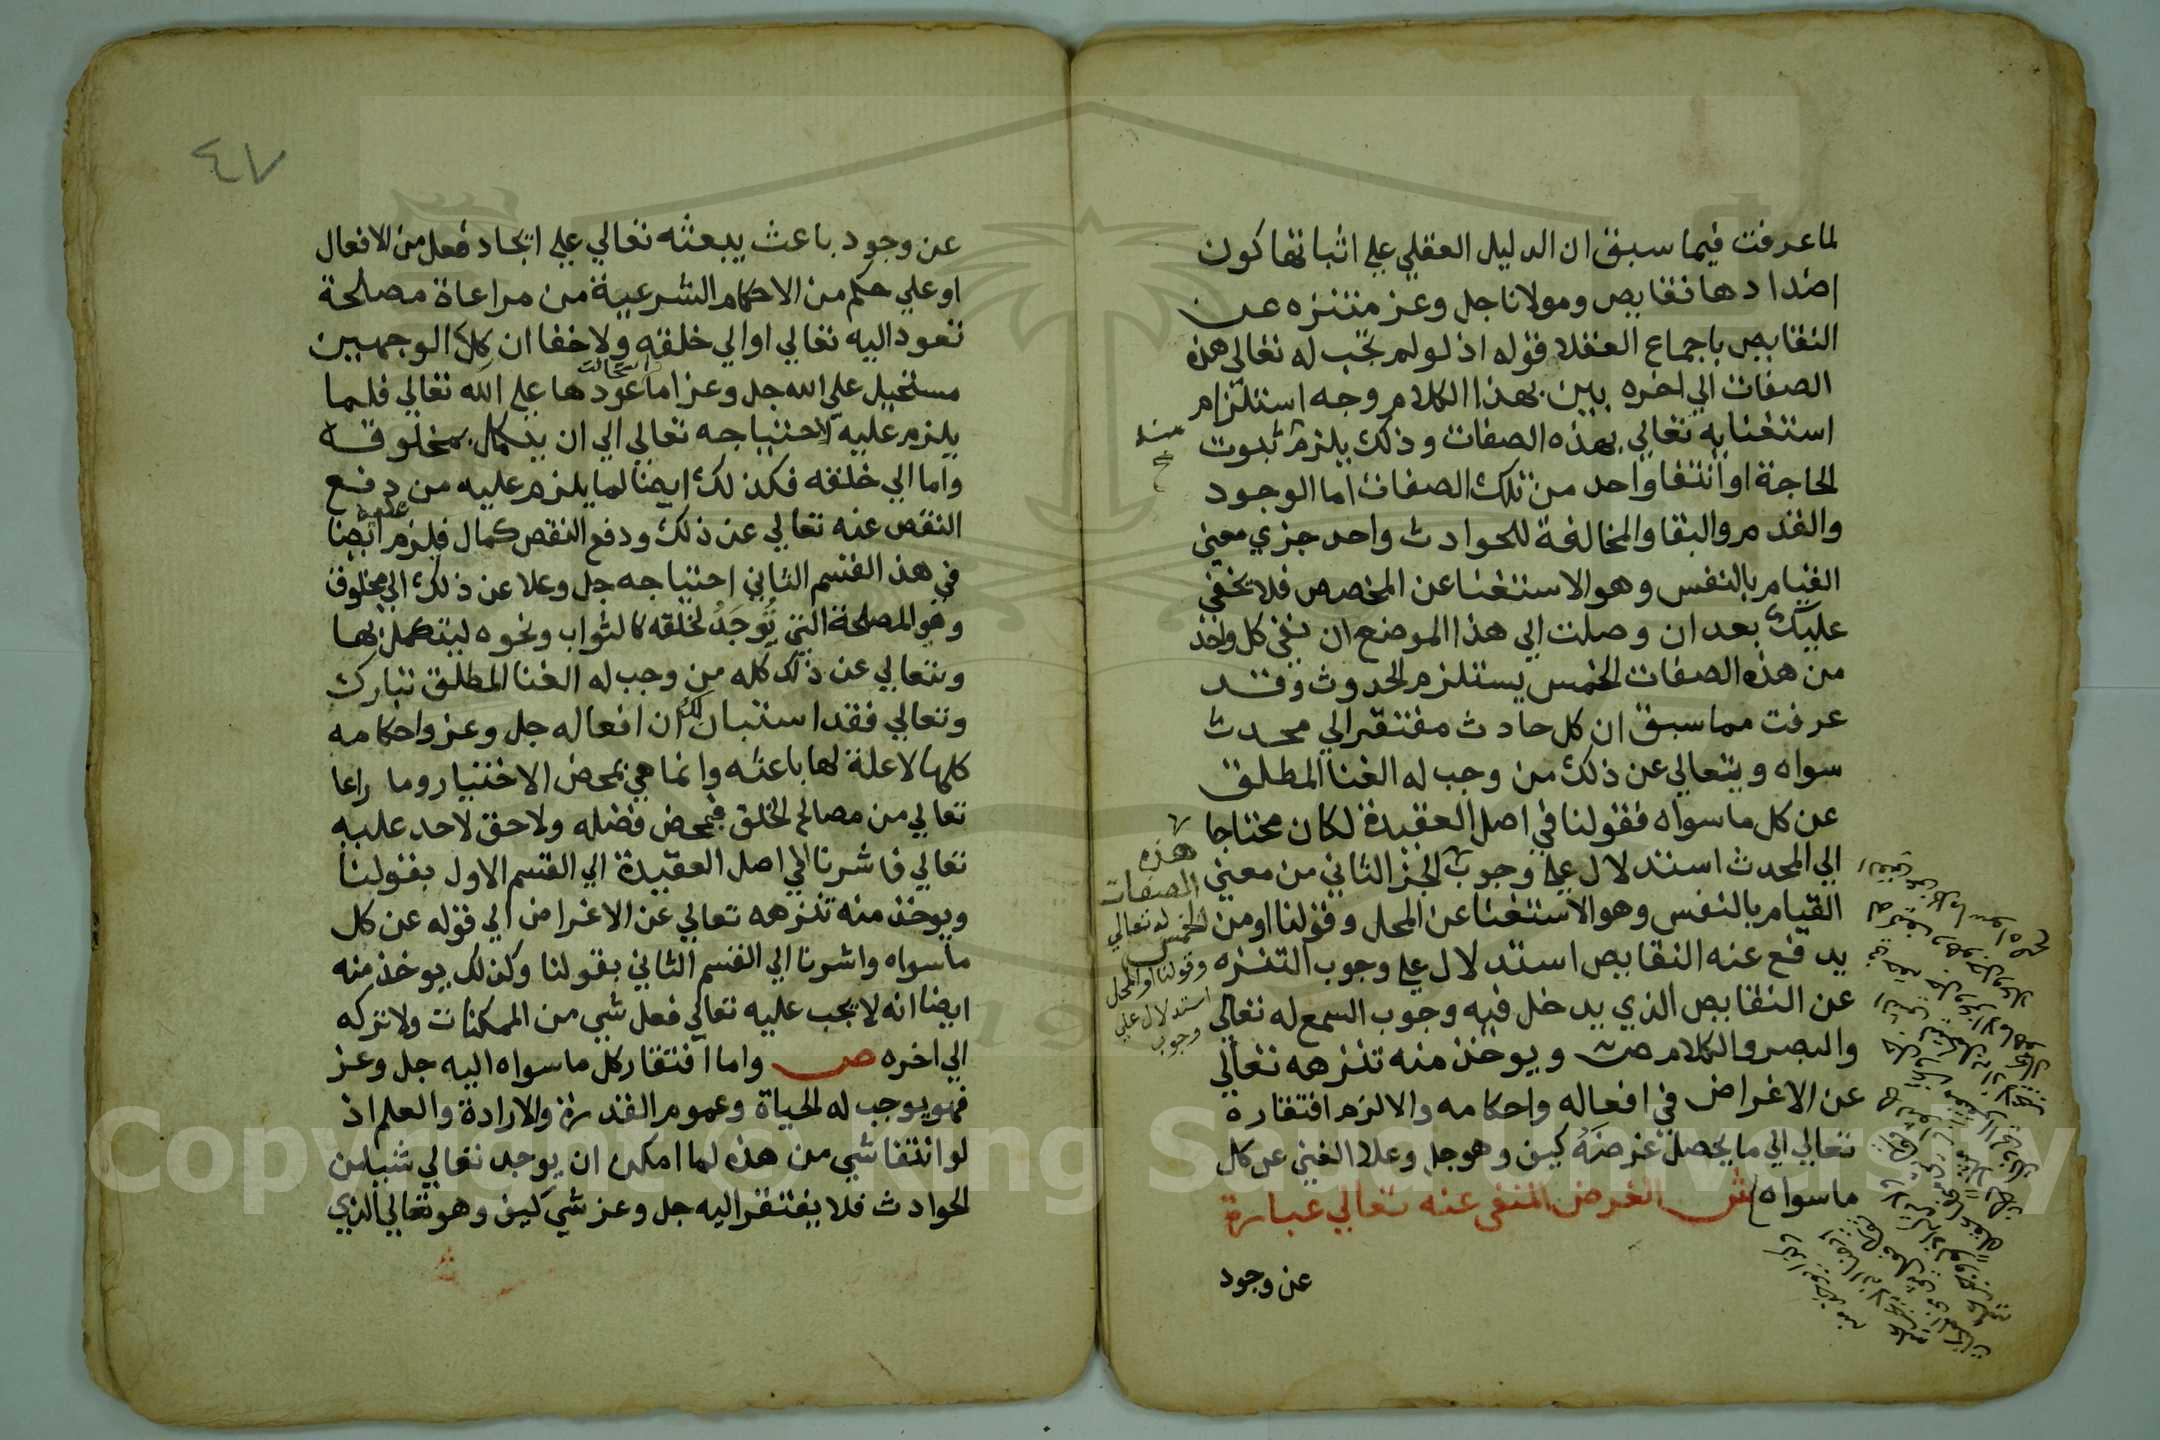 لما عرفت فيما سبق ان الدليل العقلي علي اثباتها كون
اضدادها نقايص ومولانا جل وعز متنزه عن
النقايص باجماع العقلا قوله اذ لو لم تجب له تعالي هذه
الصفات الي اخره بين بهذا الكلام وجه استلزام
استغنايه تعالي بهذه الصفات وذلك يلزم ثبوت
الحاجة او انتفا واحد من تلك الصفات اما الوجود
والقدم والبقا والمخالفة للحوادث واحد جزي معني
القيام بالنفس وهو الاستغنا عن المخصص فلا تخفي
عليك بعد ان وصلت الي هذا الموضع ان نفي كل واحد
من هذه الصفات الخمس يستلزم الحدوث وقد
عرفت مما سبق ان كل حادث مفتقر الي محدث
سواه ويتعالي عن ذلك من وجب له الغنا المطلق
عن كل ما سواه فقولنا في اصل العقيدة لكان محتاجا
الي المحدث استدلال علي وجوب الجز الثاني من معني
القيام بالنفس وهو الاستغنا عن المحل وقولنا او من
يدفع عنه النقايص استدلال علي وجوب التنزه
عن النقايص الذي يدخل فيه وجوب السمع له تعالي
والبصر والكلام ص ويوخذ منه تنزهه تعالي
عن الاغراض في افعاله واحكامه والا لزم افتقاره
تعالي الي ما يحصل غرضه كيف وهو جل وعلا الغني عن كل
ما سواه ش الغرض المنفي عنه تعالي عبارة
عن وجود
هذه
الصفات
الخمس له تعالي
وقولنا او المحل
استدلال علي
وجوب
٤٧
عن وجود باعث يبعثه تعالي علي ايجاد فعل من الافعال
او علي حكم من الاحكام الشرعية من مراعاة مصلحة
تعود اليه تعالي او الي خلقه ولا خفا ان كلا الوجهين
مستحيل علي الله جل وعز اما عودها علي الله تعالي فلما
يلزم عليه لاحتياجه تعالي الي ان يتكمل بمخلوقه
واما الي خلقه فكذلك ايضا لما يلزم عليه من دفع
النقص عنه تعالي عن ذلك ودفع النقص كمال فيلزم عليه ايضا
في هذا القسم الثاني احتياجه جل وعلا عن ذلك الي مخلوق
وهو المصلحة التي توجد لخلقه كالثواب ونحوه ليتكمل بها
وتعالي عن ذلك كله من وجب له الغنا المطلق تبارك
وتعالي فقد استبان لك ان افعاله جل وعز واحكامه
كلها لا علة لها باعثه وانما هي بمحض الاختيار وما راعا
تعالي من مصالح الخلق فبمحض فضله ولا حق لاحد عليه
تعالي فاشرنا الي اصل العقيدة الي القسم الاول بقولنا
ويوخذ منه تنزهه تعالي عن الاغراض الي قوله عن كل
ما سواه واشرنا الي القسم الثاني بقولنا وكذلك يوخذ منه
ايضا انه لا يجب عليه تعالي فعل شي من الممكنات ولا تركه
الي اخره ص واما افتقار كل ما سواه اليه جل وعز
فهو يوجب له الحياة وعموم القدرة والارادة والعلم اذ
لو انتفا شي من هذه لما امكن ان يوجد تعالي شيا من
الحوادث فلا يفتقر اليه جل وعز شي كيف وهو تعالي الذي
Copyright © King Saud University